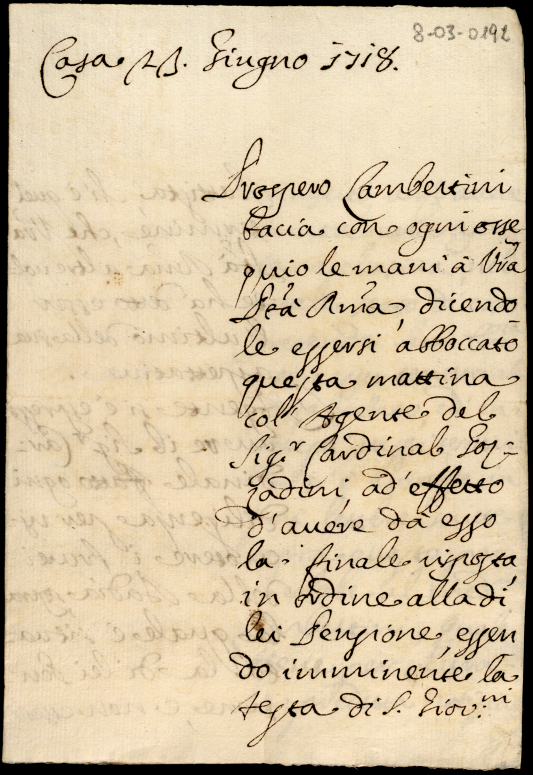 8-03-0192
Casa 23. Giugno 1718.
Prospero Lambertini
bacia con ogni osse
quio le mani à Vra
Pctà Rma, dicendo
le essersi abboccato
questa mattina
col Agente del
Sig.r Cardinal Goz-
zadini, ad'effetto
d'avere da esso
la finale risposta
in ordine alla di
lei Pensione, essen
do imminente la
festa di S. Giov.ni